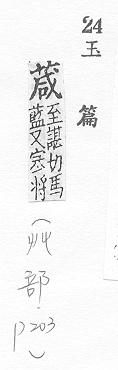 24
玉篇
葴
至諶切馬
藍又寒將
(艸部.
P203)